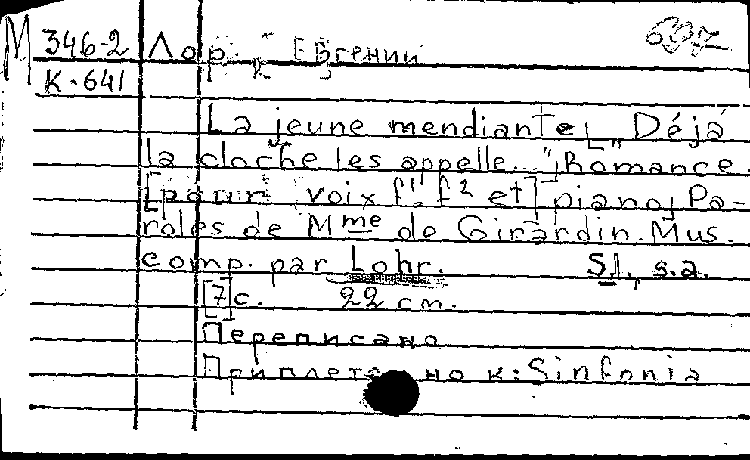 М 346-2 Лор, Евгений 637
К-641
La jeune mendiante [„Déjá
la cloche les appelle..."] Romance.
[pour voix f¹-f² et] piano; Pa-
roles de Mme de Girardin. Mus.
comp. par Lohr. S.l., s.a.
[7]с. 22 cm.
Переписано
Приплетено к: Sinfonia